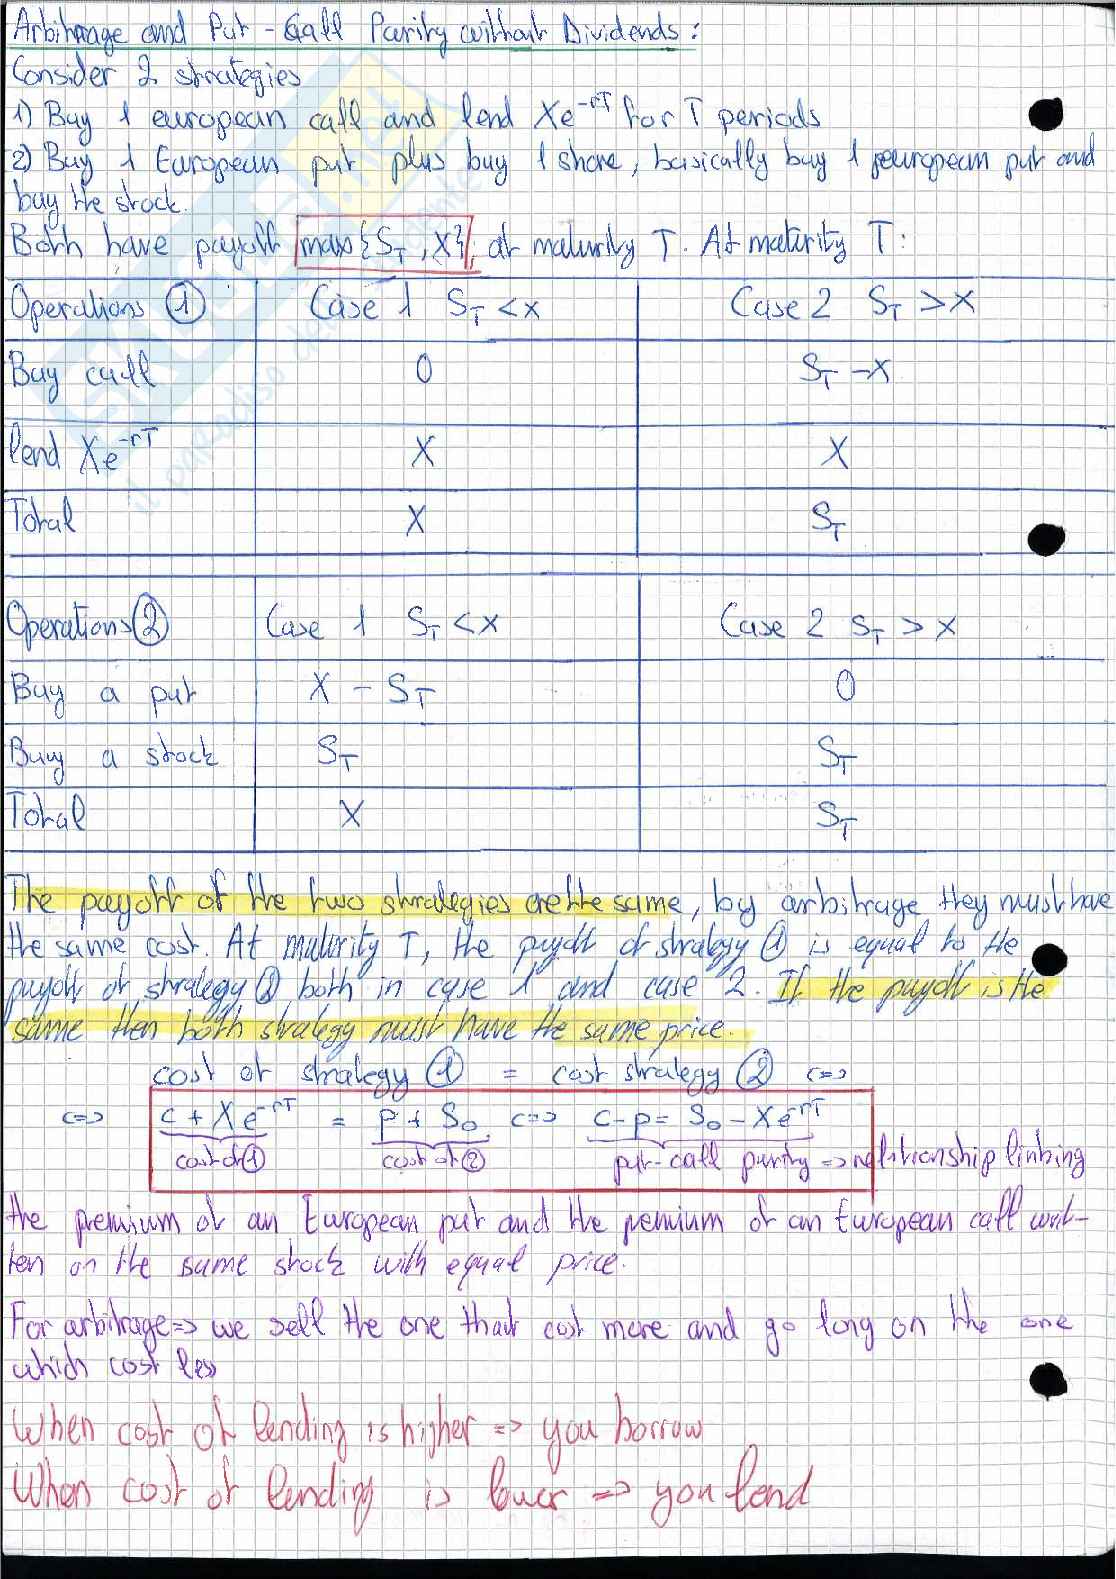 Arbitrage and Put - Call Parity without Dividends:
Consider 2 strategies
1) Buy 1 european call and lend Xe^-rT for T periods
2) Buy 1 European put plus buy 1 share, basically buy 1 european put and
buy the stock.
Both have payoff max{S_T, X}, at maturity T. At maturity T:
Operations ① Case 1 S_T < X Case 2 S_T > X
Buy call 0 S_T - X
lend Xe^-rT X X
Total X S_T
Operations ② Case 1 S_T < X Case 2 S_T > X
Buy a put X - S_T 0
Buy a stock S_T S_T
Total X S_T
The payoff of the two strategies are the same, by arbitrage they must have
the same cost. At maturity T, the payoff of strategy ① is equal to the
payoff of strategy ② both in case 1 and case 2. If the payoff is the
same then both strategy must have the same price.
cost of strategy ① = cost strategy ② <=>
<=> c + Xe^-rT = p + S_0 <=> c - p = S_0 - Xe^-rT
cost of ① cost of ② put-call parity => relationship linking
the premium of an European put and the premium of an European call writ-
ten on the same stock with equal price.
For arbitrage => we sell the one that cost more and go long on the one
which cost less
When cost of lending is higher => you borrow
When cost of lending is lower => you lend
SKUOLA.net
il paradiso dello studente